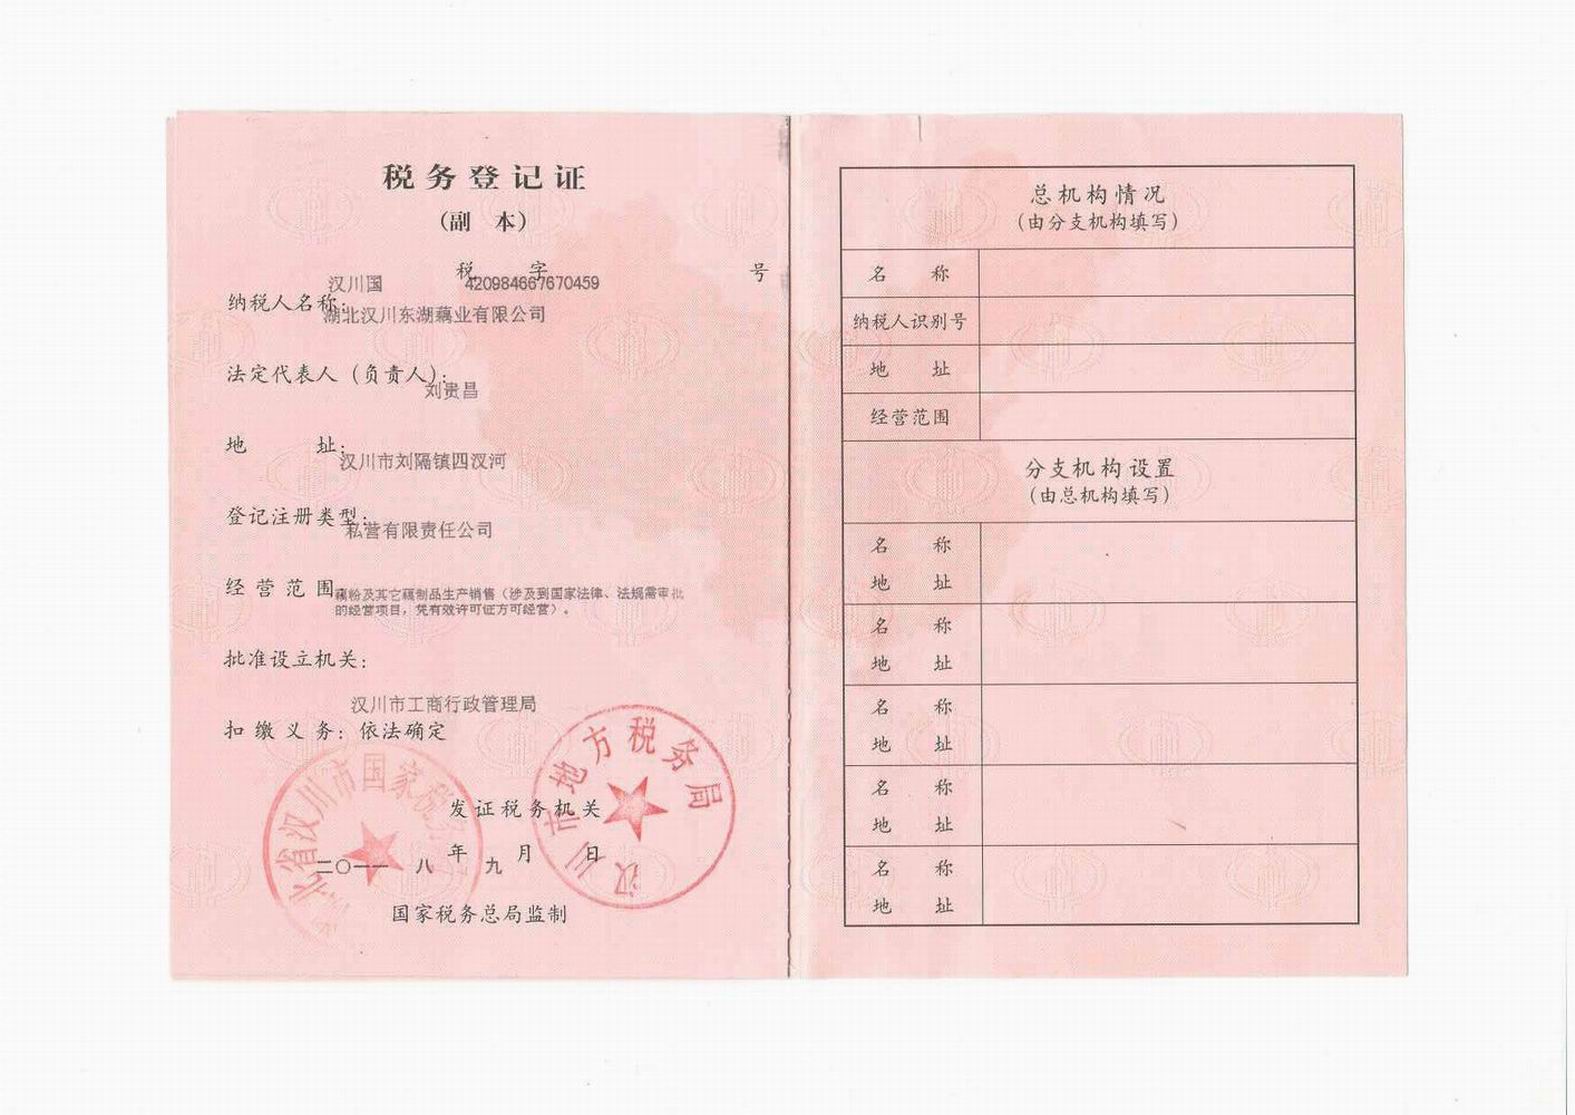 税务登记证
(副 本)
汉川国 税 字 420984667670459 号
纳税人名称:
湖北汉川东湖藕业有限公司
法定代表人（负责人）:
刘贵昌
地 址:
汉川市刘隔镇四汊河
登记注册类型:
私营有限责任公司
经营范围
藕粉及其它藕制品生产销售（涉及到国家法律、法规需审批
的经营项目，凭有效许可证方可经营）。
批准设立机关:
汉川市工商行政管理局
扣缴义务: 依法确定
汉川市地方税务局
省汉川市国家税务
发证税务机关
二〇一一 年 八 月 九 日
国家税务总局监制
总机构情况
(由分支机构填写)
名 称
纳税人识别号
地 址
经营范围
分支机构设置
(由总机构填写)
名 称
地 址
名 称
地 址
名 称
地 址
名 称
地 址
名 称
地 址